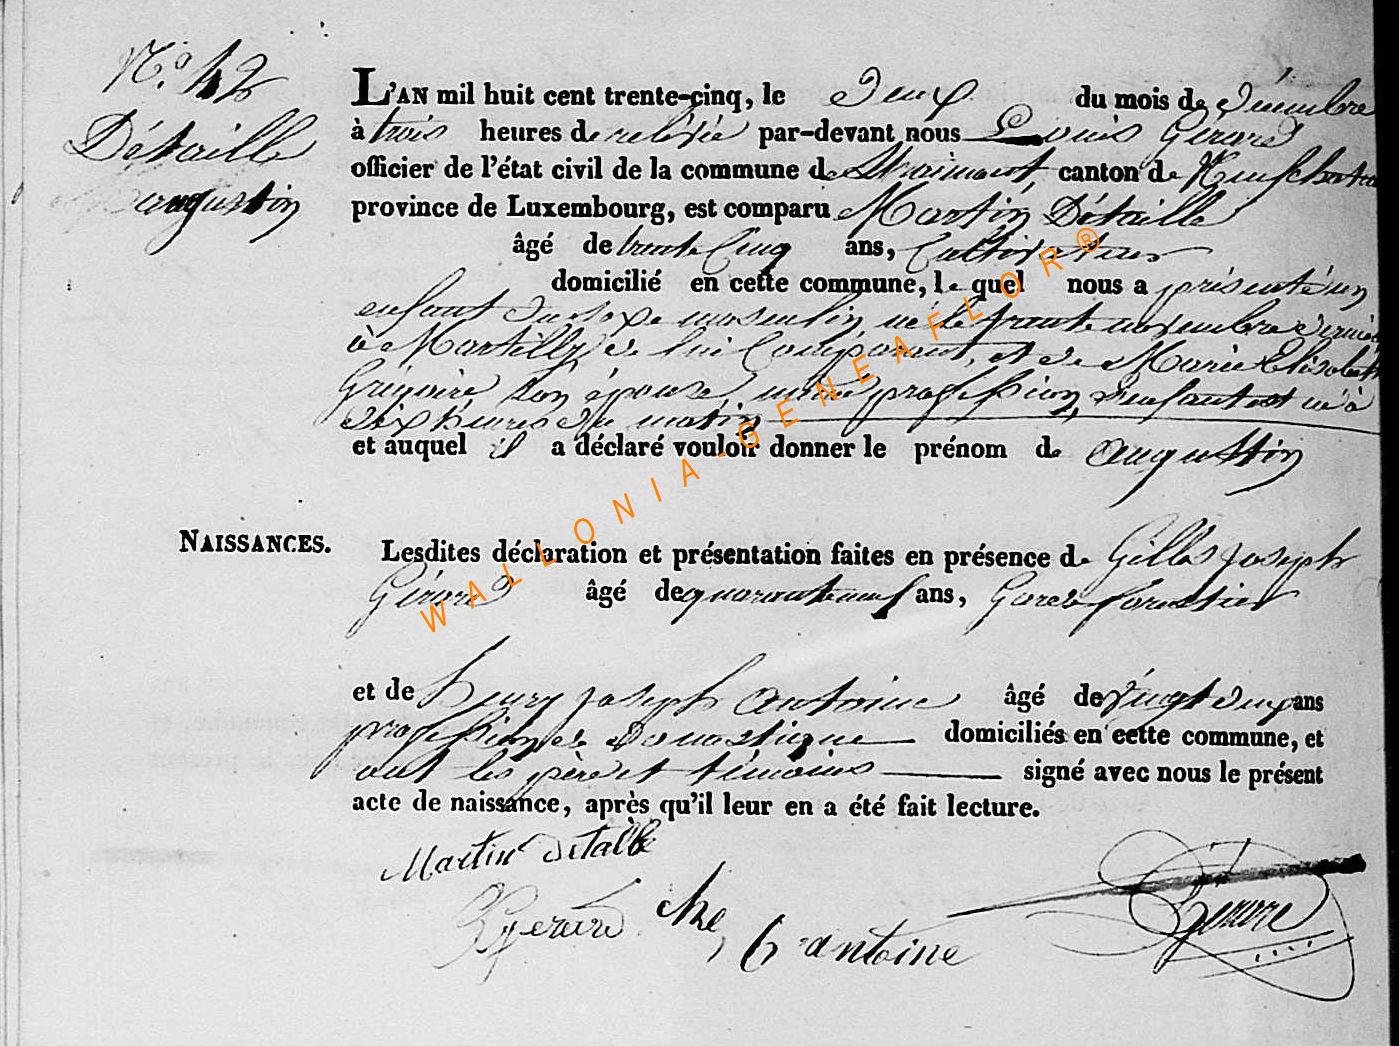 N.° 42
Détaille
augustin
L'AN mil huit cent trente-cinq, le Deux du mois de Décembre
à trois heures de relevée par-devant nous Louis Gérard
officier de l'état civil de la commune de Straimont, canton de Neufchateau
province de Luxembourg, est comparu Martin Détaille
âgé de trente Cinq ans, Cultivateur
domicilié en cette commune, le quel nous a présenté un
enfant du sexe masculin, né le trente novembre dernier
à Martilly, de lui Comparant, et de Marie Elisabeth
Grégoire son épouse, même profession, l'enfant est né à
dix heures du matin
et auquel il a déclaré vouloir donner le prénom de augustin
NAISSANCES.
Lesdites déclaration et présentation faites en présence de Gilles Joseph
Gérard âgé de quarante neuf ans, Garde forestier
et de henry Joseph antoine âgé de vingt deux ans
profession de domestique domiciliés en cette commune, et
ont les père et témoins signé avec nous le présent
acte de naissance, après qu'il leur en a été fait lecture.
Martin detalle
Gerard
antoine
Gerard
WALLONIA-GENEAFLOR®